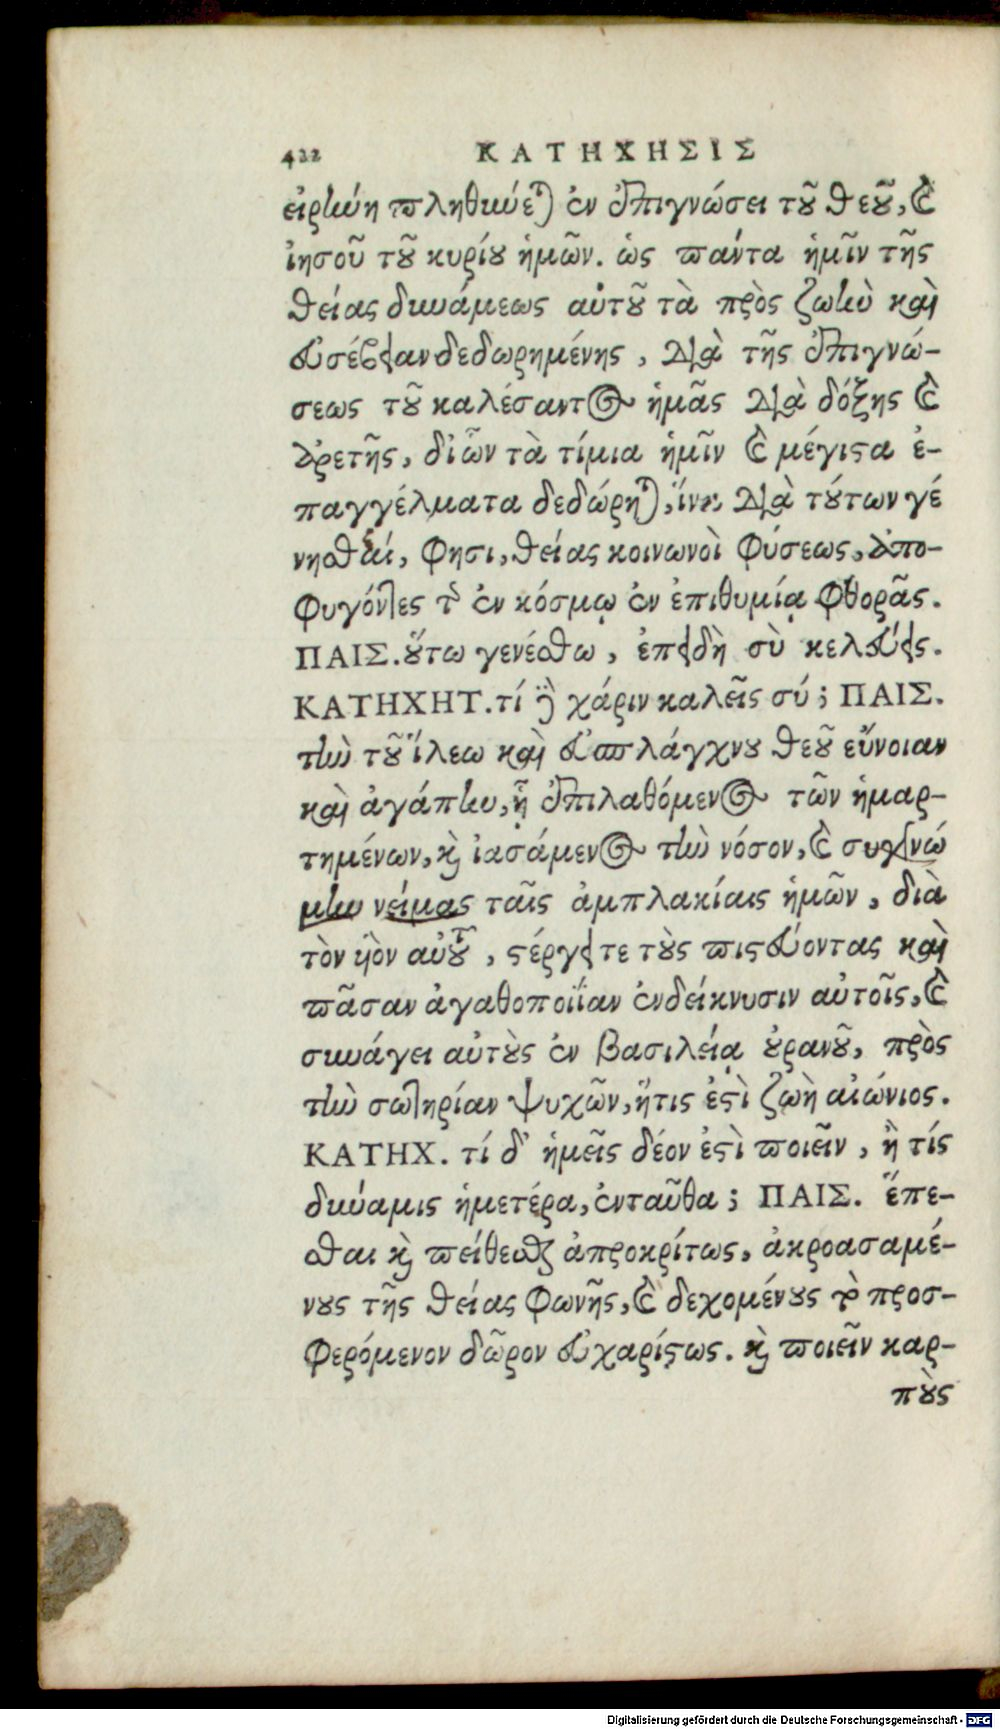 422 ΚΑΤΗΧΗΣΙΣ
εἰρήνη πληθυνθείη ἐν ἐπιγνώσει τοῦ θεοῦ, καὶ
ἰησοῦ τοῦ κυρίου ἡμῶν. ὡς πάντα ἡμῖν τῆς
θείας δυνάμεως αὐτοῦ τὰ πρὸς ζωὴν καὶ
εὐσέβειαν δεδωρημένης, διὰ τῆς ἐπιγνώ-
σεως τοῦ καλέσαντος ἡμᾶς διὰ δόξης καὶ
ἀρετῆς, δι' ὧν τὰ τίμια ἡμῖν καὶ μέγιστα ἐ-
παγγέλματα δεδώρηται, ἵνα διὰ τούτων γέ
νησθε, φησι, θείας κοινωνοὶ φύσεως, ἀπο-
φυγόντες τῆς ἐν κόσμῳ ἐν ἐπιθυμίᾳ φθορᾶς.
ΠΑΙΣ. οὕτω γενέσθω, ἐπειδὴ σὺ κελεύεις.
ΚΑΤΗΧΗΤ. τί δὲ χάριν καλεῖς σύ; ΠΑΙΣ.
τὴν τοῦ ἵλεω καὶ εὐσπλάγχνου θεοῦ εὔνοιαν
καὶ ἀγάπην, ᾗ ἐπιλαθόμενος τῶν ἡμαρ-
τημένων, καὶ ἰασάμενος τὴν νόσον, καὶ συγγνώ
μην νείμας ταῖς ἀμπλακίαις ἡμῶν, διὰ
τὸν υἱὸν αὐτοῦ, στέργει τε τοὺς πιστεύοντας καὶ
πᾶσαν ἀγαθοποιΐαν ἐνδείκνυσιν αὐτοῖς, καὶ
συνάγει αὐτοὺς ἐν βασιλείᾳ οὐρανοῦ, πρὸς
τὴν σωτηρίαν ψυχῶν, ἥτις ἐστὶ ζωὴ αἰώνιος.
ΚΑΤΗΧ. τί δ' ἡμεῖς δέον ἐστὶ ποιεῖν, ἢ τίς
δύναμις ἡμετέρα, ἐνταῦθα; ΠΑΙΣ. ἕπε-
σθαι καὶ πείθεσθαι ἀπροκρίτως, ἀκροασαμέ-
νους τῆς θείας φωνῆς, καὶ δεχομένους τὸ προσ-
φερόμενον δῶρον εὐχαρίστως. καὶ ποιεῖν καρ-
ποὺς
Digitalisierung gefördert durch die Deutsche Forschungsgemeinschaft - DFG